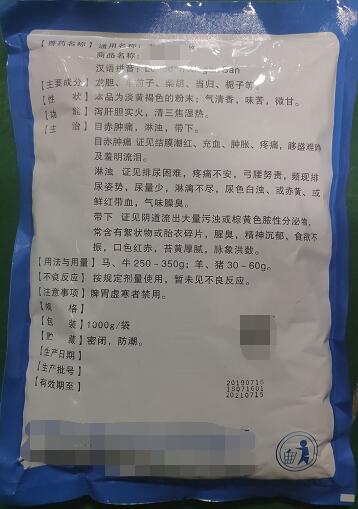 【兽药名称】 通用名称:
商品名称:
汉语拼音:
【主要成分】 龙胆、车前子、柴胡、当归、栀子等。
【性 状】 本品为淡黄褐色的粉末;气清香,味苦,微甘。
【功 能】 泻肝胆实火,清三焦湿热。
【主 治】 目赤肿痛,淋浊,带下。
目赤肿痛 证见结膜潮红、充血、肿胀、疼痛,眵盛难睁
及羞明流泪。
淋浊 证见排尿困难,疼痛不安,弓腰努责,频现排
尿姿势,尿量少,淋漓不尽,尿色白浊、或赤黄、或
鲜红带血,气味臊臭。
带下 证见阴道流出大量污浊或棕黄色脓性分泌物,
常含有絮状物或胎衣碎片,腥臭,精神沉郁,食欲不
振,口色红赤,苔黄厚腻,脉象洪数。
【用法与用量】 马、牛250-350g;羊、猪30-60g。
【不良反应】 按规定剂量使用,暂未见不良反应。
【注意事项】 脾胃虚寒者禁用。
【规 格】
【包 装】 1000g/袋
【贮 藏】 密闭,防潮。
【生产日期】 20190716
【生产批号】 19071601
【有效期至】 20210715